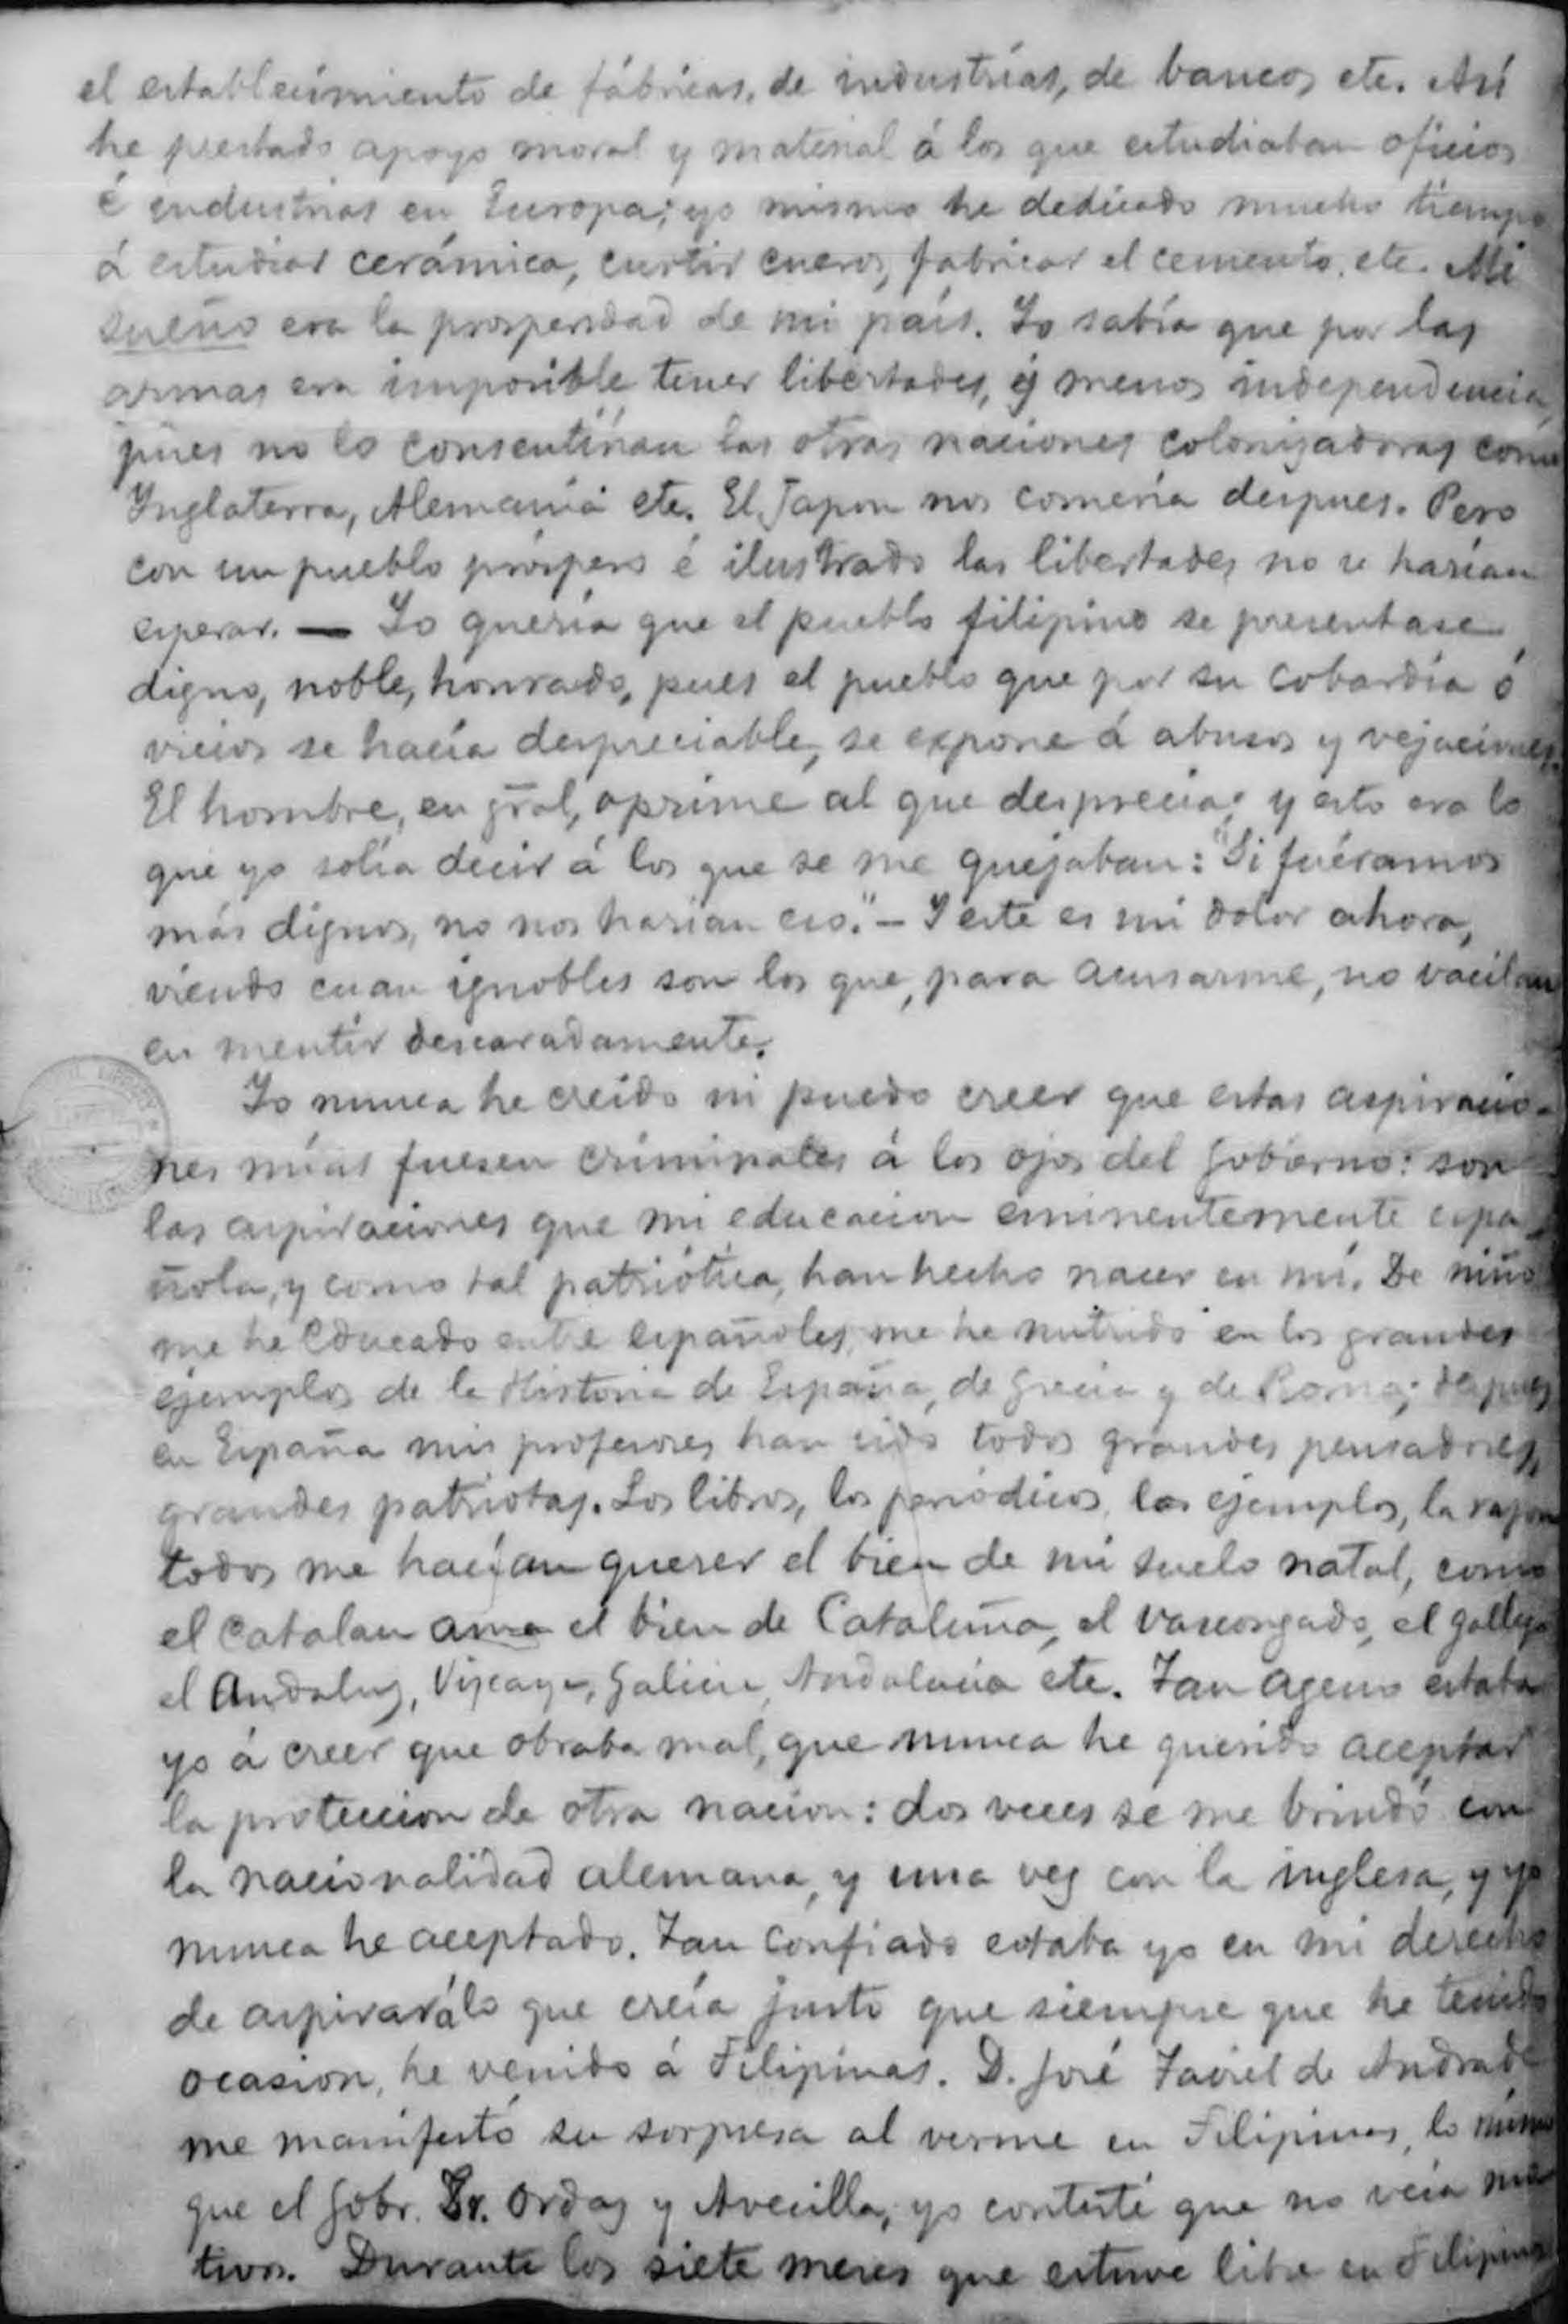 el establecimiento de fábricas, de industrias, de bancos etc. Así
he prestado apoyo moral y material á los que estudiaban oficios
é industrias en Europa; yo mismo he dedicado mucho tiempo
á estudiar cerámica, curtir cueros, fabricar el cemento, etc. Mi
sueño era la prosperidad de mi país. Yo sabía que por las
armas era imposible tener libertades, y menos independencia,
pues no lo consentirían las otras naciones colonizadoras como
Inglaterra, Alemania etc. El Japon nos comería despues. Pero
con un pueblo próspero é ilustrado las libertades no se harían
esperar. — Yo quería que el pueblo filipino se presentase
digno, noble, honrado, pues el pueblo que por su cobardía ó
vicios se hacía despreciable, se expone á abusos y vejaciones.
El hombre, en gral, oprime al que desprecia; y esto era lo
que yo solía decir á los que se me quejaban: "Si fuéramos
más dignos, no nos harían eso." — Y este es mi dolor ahora,
viendo cuan ignobles son los que, para acusarme, no vacilan
en mentir descaradamente.
Yo nunca he creido ni puedo creer que estas aspiracio-
nes mías fuesen criminales á los ojos del Gobierno: son
las aspiraciones que mi educacion eminentemente espa-
ñola, y como tal patriótica, han hecho nacer en mí. De niño
me he educado entre españoles, me he nutrido en los grandes
ejemplos de la Historia de España, de Grecia y de Roma; despues
en España mis profesores han sido todos grandes pensadores,
grandes patriotas. Los libros, los periódicos, los ejemplos, la razon
todos me hacían querer el bien de mi suelo natal, como
el catalan ama el bien de Cataluña, el vascongado, el gallego
el Andaluz, Vizcaya, Galicia, Andalucia etc. Tan ageno estaba
yo á creer que obraba mal, que nunca he querido aceptar
la proteccion de otra nacion: dos veces se me brindó con
la nacionalidad alemana, y una vez con la inglesa, y yo
nunca he aceptado. Tan confiado estaba yo en mi derecho
de aspirar á lo que creía justo que siempre que he tenido
ocasion, he venido á Filipinas. D. José Taviel de Andrade
me manifestó su sorpresa al verme en Filipinas, lo mismo
que el Gobr. Sr. Ordaz y Avecilla; yo contesté que no veía mo-
tivos. Durante los siete meses que estuve libre en Filipinas